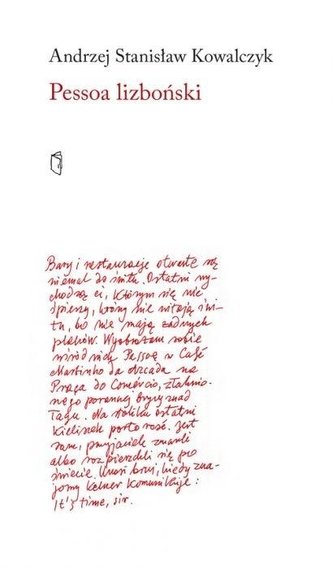 Andrzej Stanisław Kowalczyk
Pessoa lizboński
Bary i restauracje otwarte są
niemal do świtu. Ostatni wy-
chodzą ci, którym się nie
śpieszy, którzy nie witają świ-
tu, bo nie mają żadnych
planów. Wyobrażam sobie
wśród nich Pessoę w Café
Martinho da Arcada na
Praça do Comércio,
nego porannej bryzy znad
Tagu. Na stoliku ostatni
kieliszek porto rosé. Jest
sam, przyjaciele zmarli
albo rozpierzchli się po
świecie. Musi być, kiedy zna-
jomy kelner komunikuje:
It's time, sir.